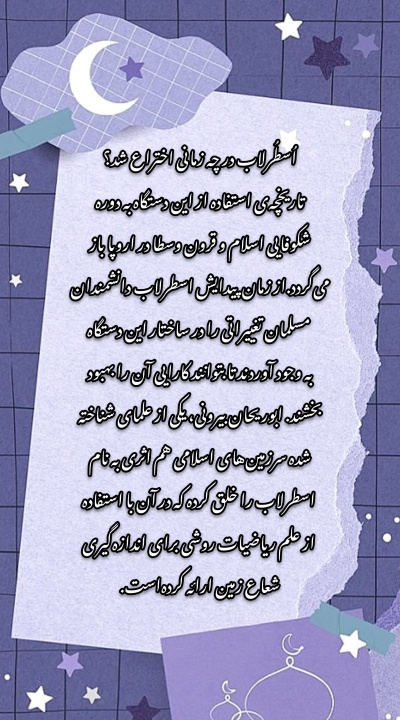 اُسطُرلاب در چه زمانی اختراع شد؟
تاریخچه‌ی استفاده از این دستگاه به دوره
شکوفایی اسلام و قرون وسطا در اروپا باز
می گردد. از زمان پیدایش اسطرلاب دانشمندان
مسلمان تغییراتی را در ساختار این دستگاه
به وجود آوردند تا بتوانند کارایی آن را بهبود
بخشند. ابوریحان بیرونی، یکی از علمای شناخته
شده سرزمین‌های اسلامی هم اثری به نام
اسطرلاب را خلق کرده که در آن با استفاده
از علم ریاضیات روشی برای اندازه گیری
شعاع زمین ارائه کرده است.